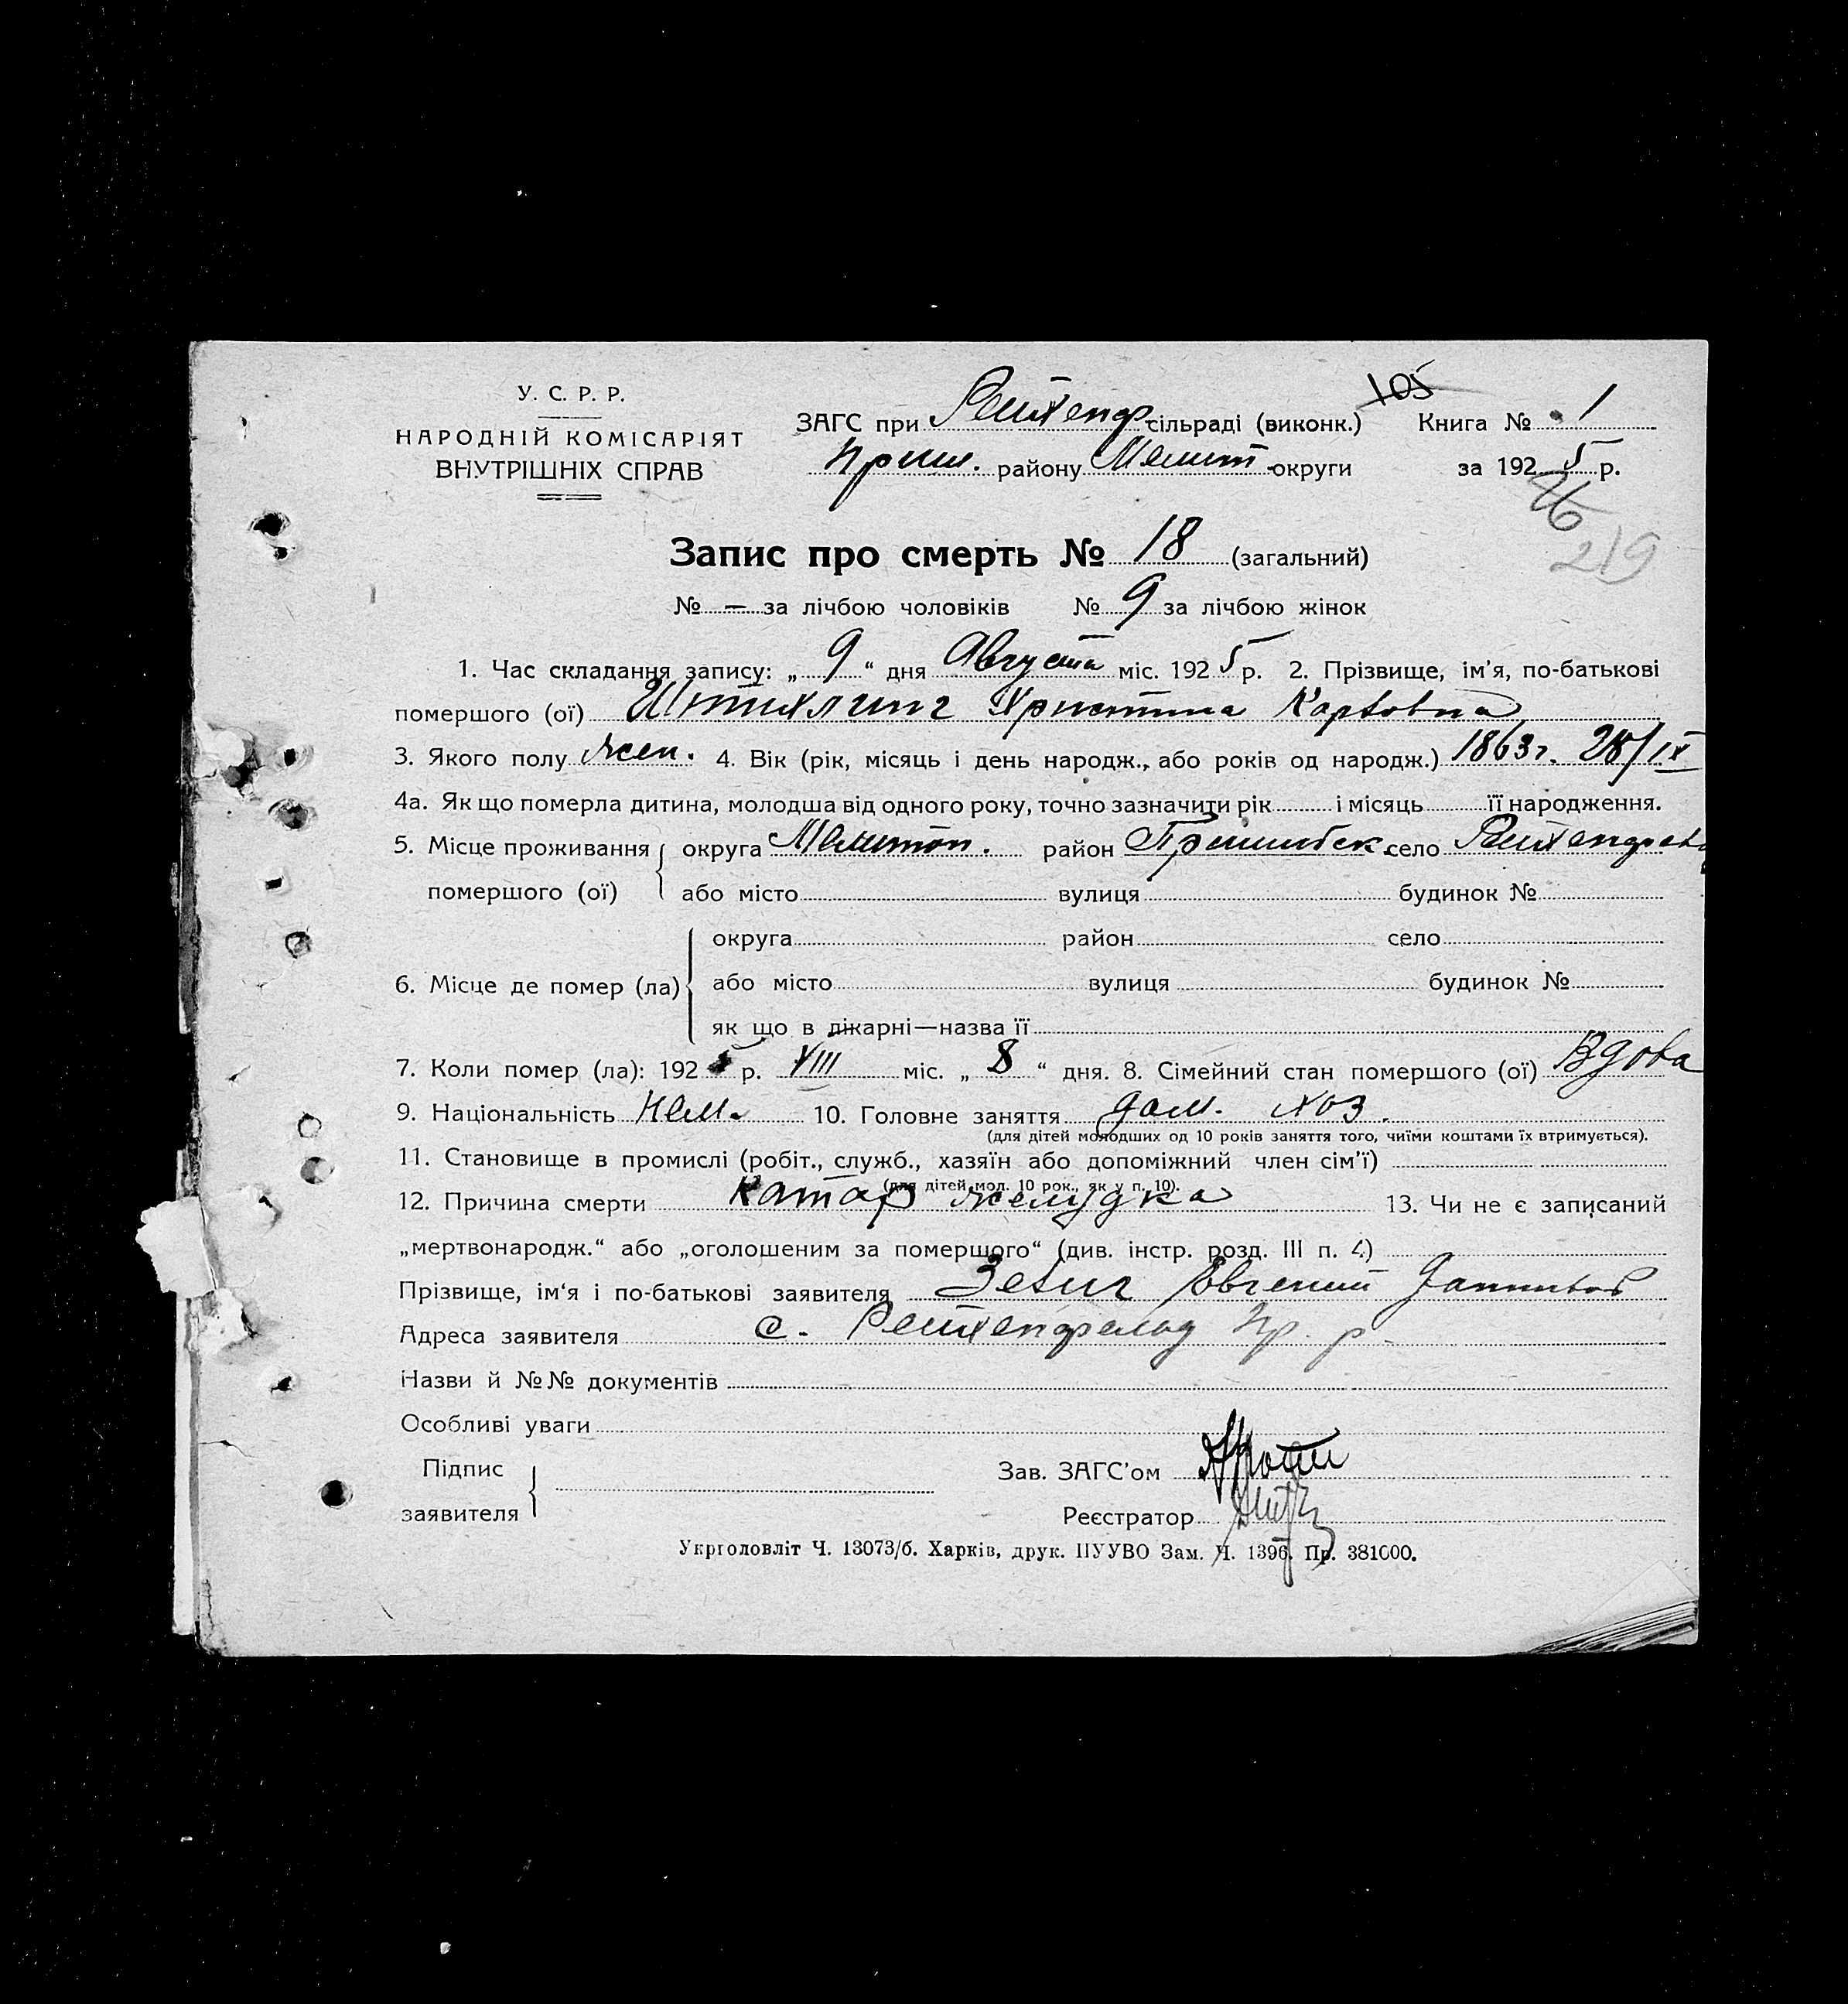 У. С. Р. Р.
НАРОДНІЙ КОМІСАРІЯТ
ВНУТРІШНІХ СПРАВ
105
ЗАГС при Рейхенф. сільраді (виконк.) Книга № 1
Приш. району Мелит. округи за 1925 р.
26
219
Запис про смерть № 18 (загальний)
№ — за лічбою чоловіків № 9 за лічбою жінок
1. Час складання запису: „ 9 “ дня Августа міс. 1925 р. 2. Прізвище, ім’я, по-батькові
помершого (ої) Штихлинг Христина Карловна
3. Якого полу жен. 4. Вік (рік, місяць і день народж., або років од народж.) 1863 г. 28/IX
4а. Як що померла дитина, молодша від одного року, точно зазначити рік і місяць її народження.
5. Місце проживання округа Мелитоп. район Пришибск. село Рейхенфельд
помершого (ої) або місто вулиця будинок №
округа район село
6. Місце де помер (ла) або місто вулиця будинок №
як що в лікарні—назва її
7. Коли помер (ла): 1925 р. VIII міс. „ 8 “ дня. 8. Сімейний стан помершого (ої) Вдова
9. Національність нем. 10. Головне заняття дом. хоз.
(для дітей молодших од 10 років заняття того, чиїми коштами їх втримується).
11. Становище в промислі (робіт., служб., хазяїн або допоміжний член сім’ї)
(для дітей мол. 10 рок., як у п. 10).
12. Причина смерти Катар желудка 13. Чи не є записаний
„мертвонародж.“ або „оголошеним за помершого“ (див. інстр. розд. III п. 4)
Прізвище, ім‘я і по-батькові заявителя Евгений
Адреса заявителя с. Рейхенфельд Пр. р.
Назви й №№ документів
Особливі уваги
Підпис
заявителя
Зав. ЗАГС’ом
Реєстратор
Укрголовліт Ч. 13073/б. Харків, друк. ПУУВО Зам. Ч. 1396. Пр. 381000.